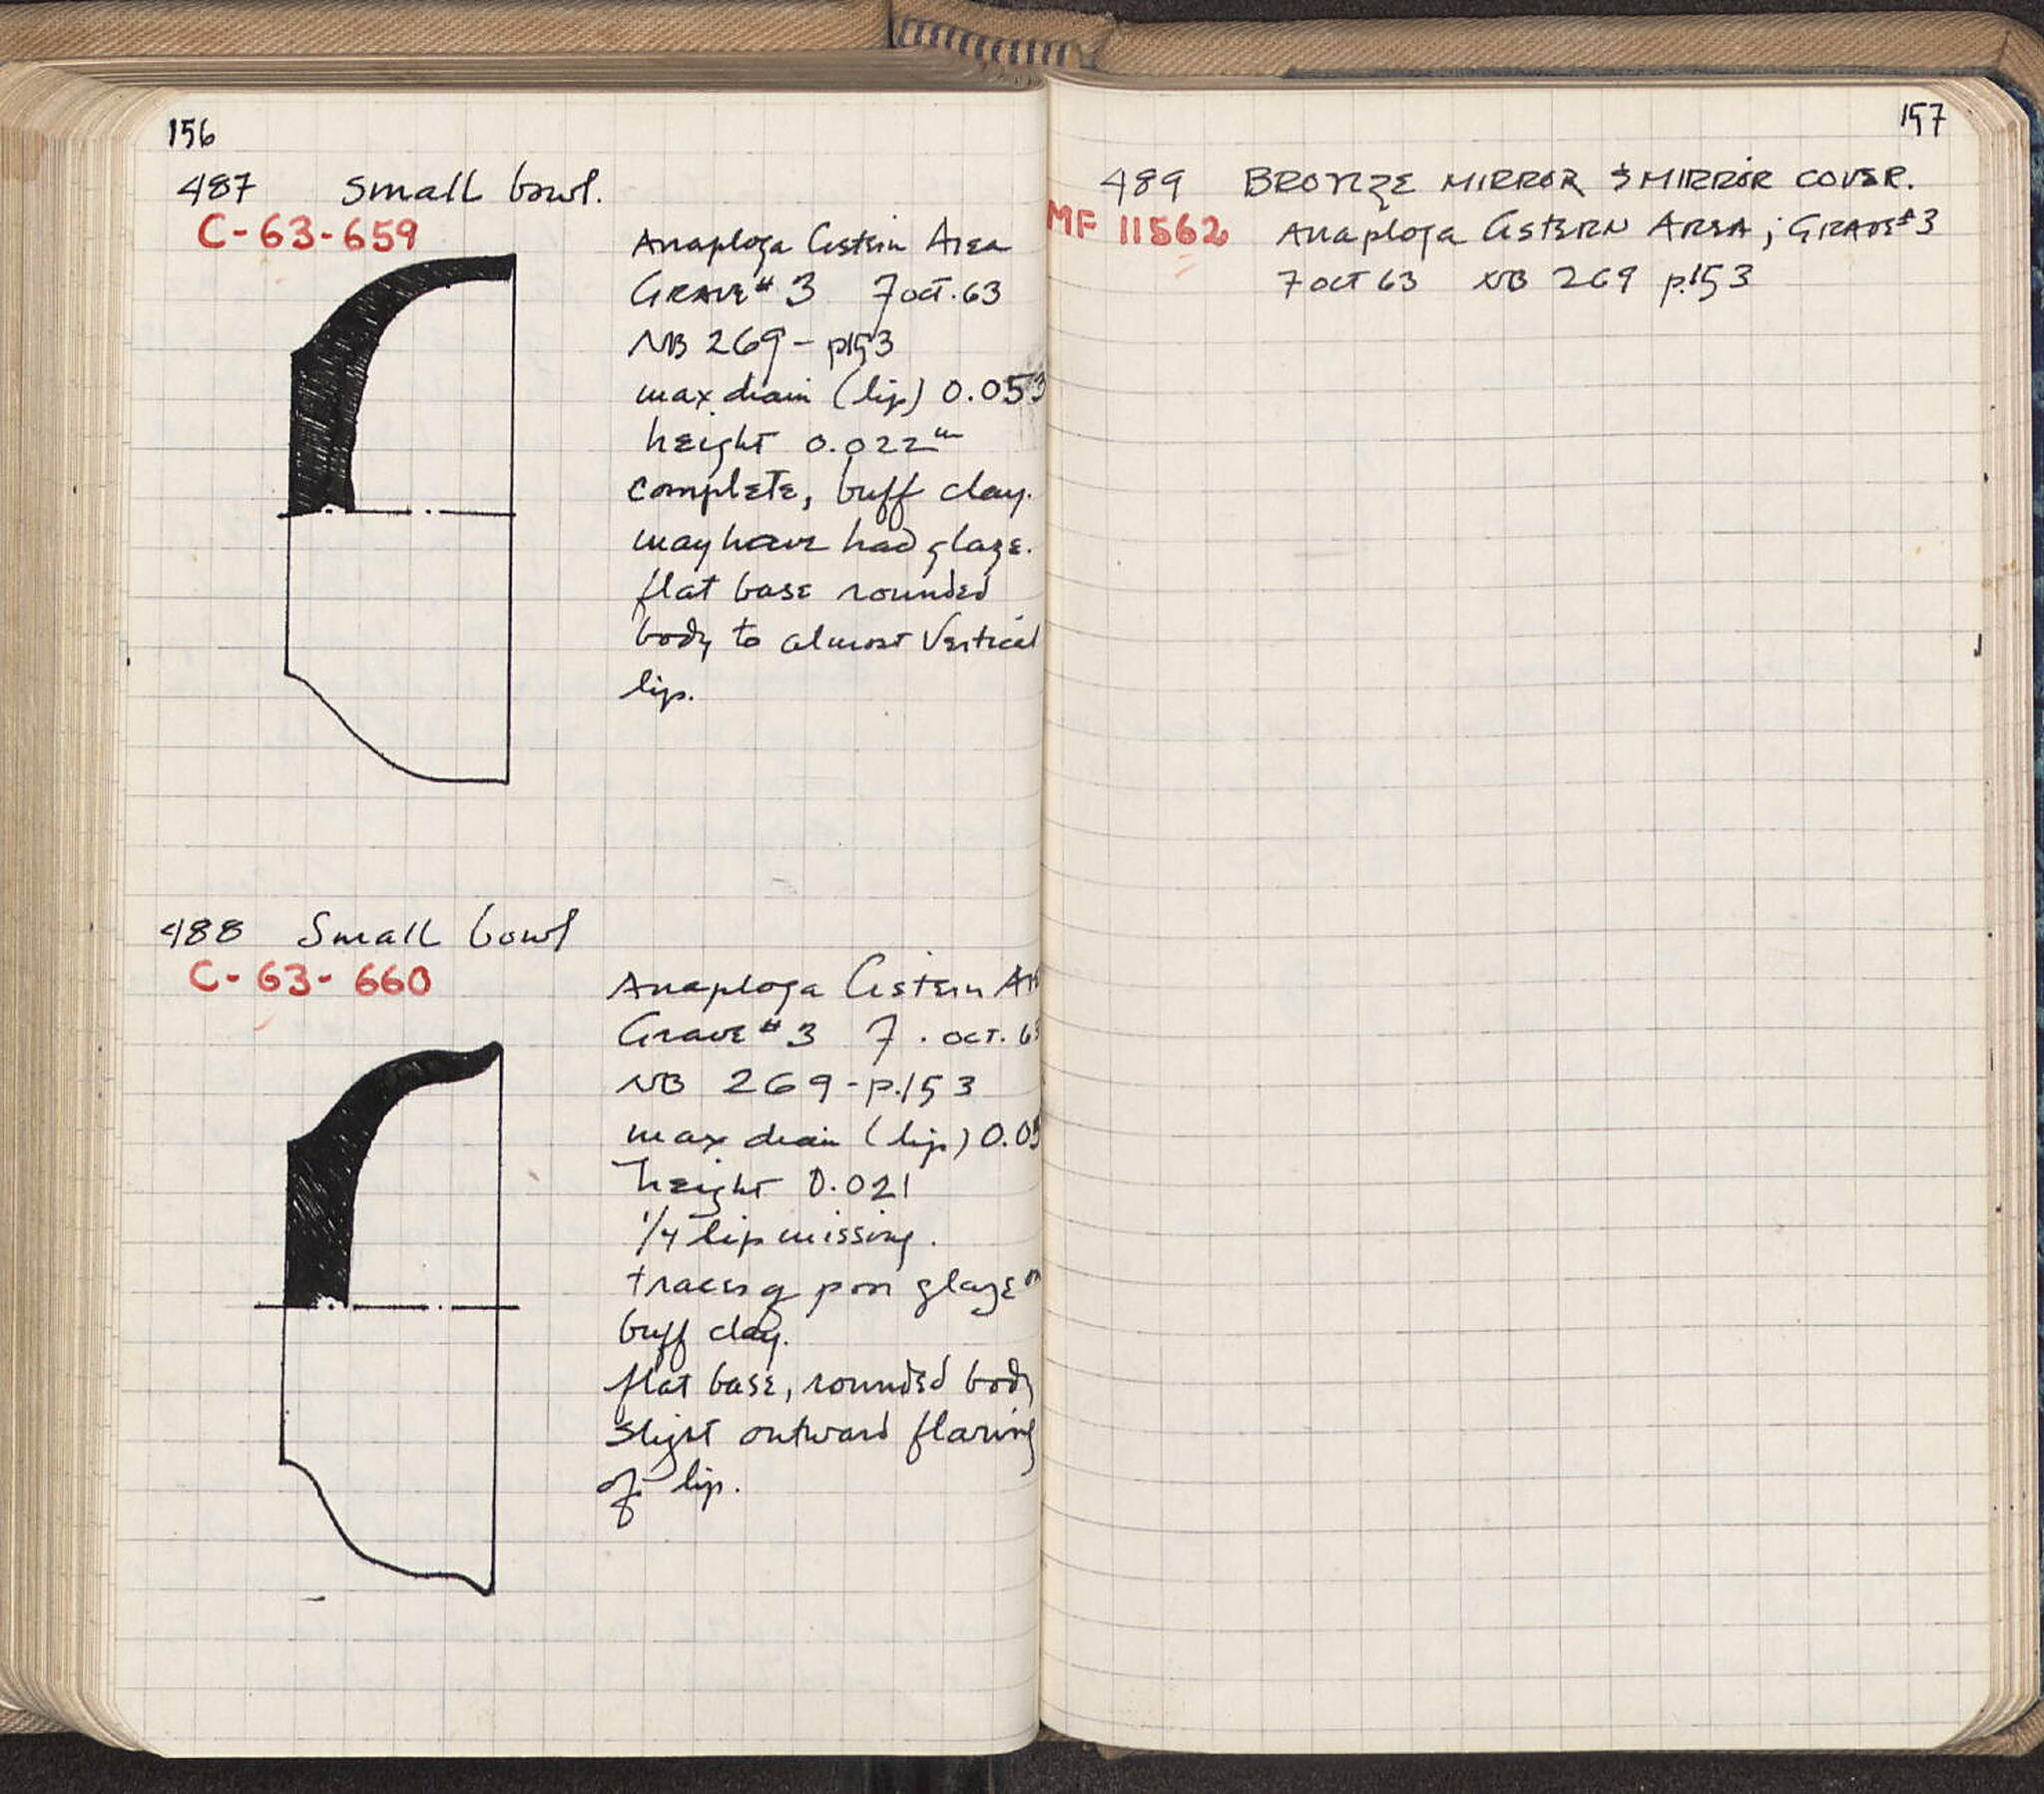 156
487 Small bowl.
C-63-659
Anaploga Cistern Area
Grave #3 7 oct. 63
NB 269 - p153
max diam (lip) 0.053
height 0.022 m
complete, buff clay.
may have had glaze.
flat base rounded
body to almost vertical
lip.
488 Small bowl
C-63-660
Anaploga Cistern
Grave #3 7. oct. 63
NB 269-p.153
max diam (lip)
height 0.021
1/4 lip missing.
traces of poor glaze on
buff clay.
flat base, rounded body
slight outward flaring
of lip.
157
489 BRONZE MIRROR & MIRROR COVER.
MF 11562
Anaploga CISTERN AREA; GRAVE #3
7 oct 63 NB 269 p.153